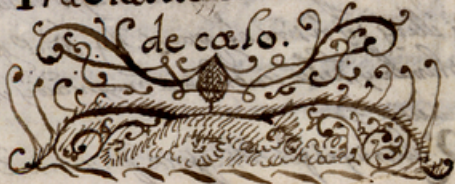 de cælo.